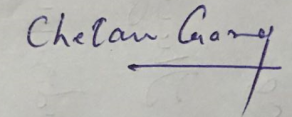 Chetan Garg